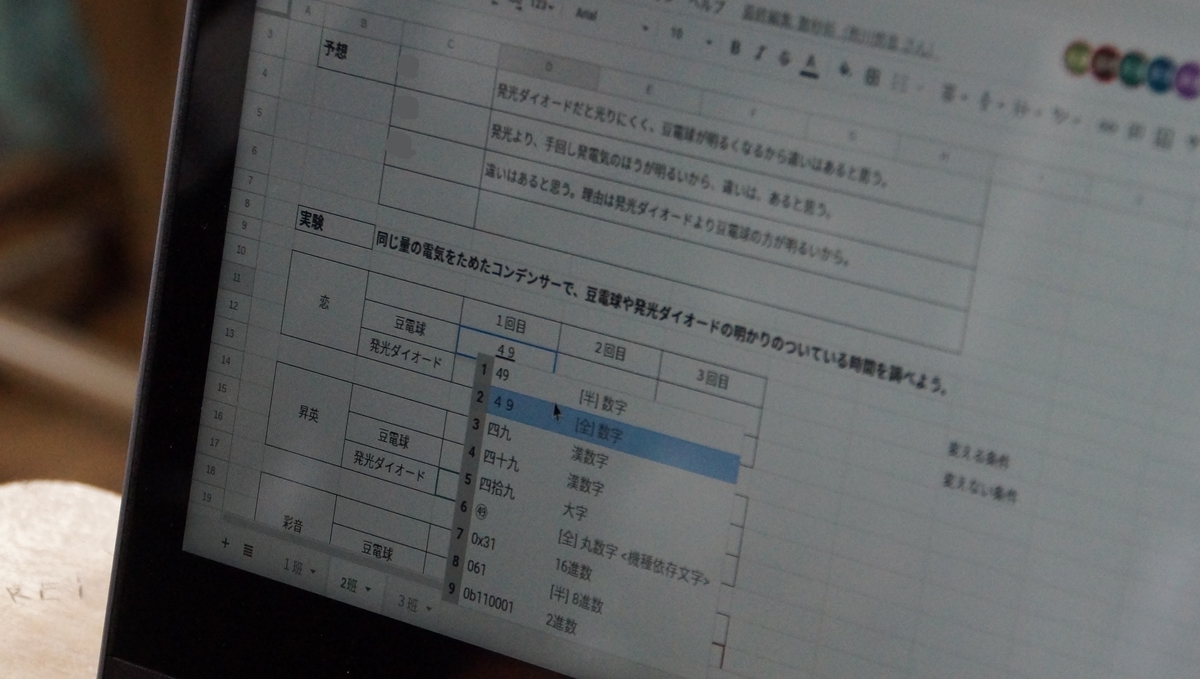 ヘルプ
123
Arial
10
B I S A
A B C D E F G H
3 予想
4 発光ダイオードだと光りにくく、豆電球が明るくなるから違いはあると思う。
5 発光より、手回し発電気のほうが明るいから、違いは、あると思う。
6 違いはあると思う。理由は発光ダイオードより豆電球の方が明るいから。
7
8
9 実験 同じ量の電気をためたコンデンサーで、豆電球や発光ダイオードの明かりのついている時間を調べよう。
10
11 恋 1回目 2回目 3回目
12 豆電球 49
13 発光ダイオード
14
15 昇英
16 豆電球
17 発光ダイオード
18
19 彩音
豆電球
1 49 [半] 数字
2 49 [全] 数字
3 四九 漢数字
4 四十九 漢数字
5 四拾九 大字
6 ㊾ [全] 丸数字 <機種依存文字>
7 0x31 16進数
8 061 [半] 8進数
9 0b110001 2進数
変える条件
変えない条件
+ 1班 2班 3班
REI